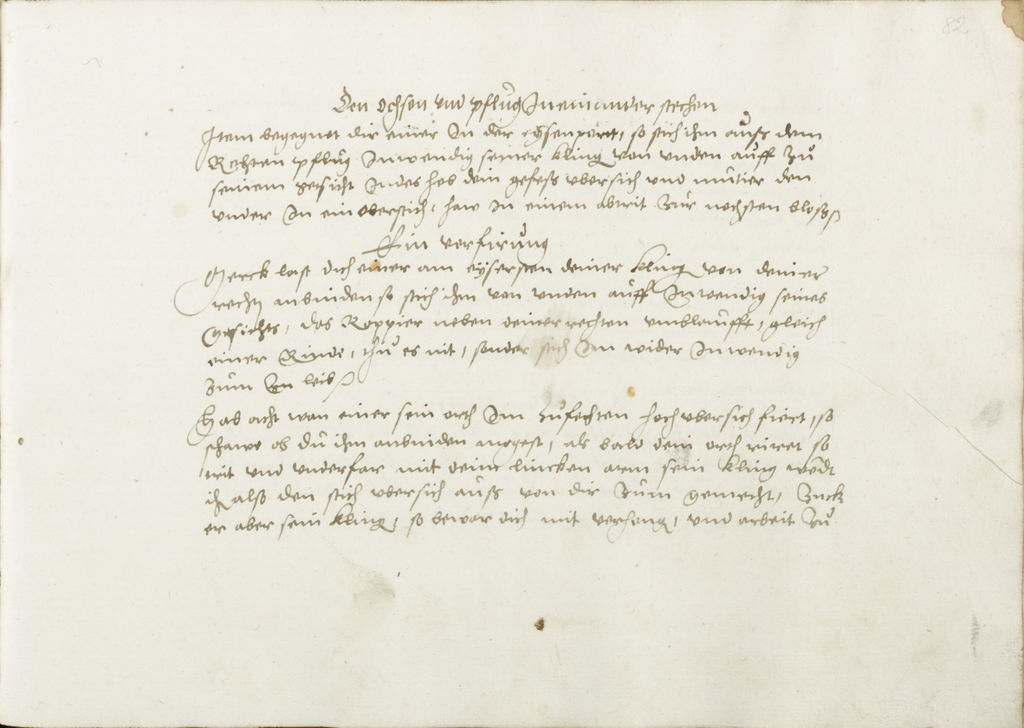 82
Den ochsen und pflůg In ein ander stechen
Item begegnet dir einer In der eysenport, so stich ihm auß dem
Rechten pflůg Inwendig seiner kling von unden auff Zů
seinem gesicht Indes heb dein gefess ubersich und mutier den
under In ein oberstich, haw In einem abtrit Zur nechsten bloß
Ein verfirung
Merck last dich einer am eysersten deiner kling von deiner
rechten anbinden so stich ihm von unden auff Inwendig seines
Gesichts, das Rappier neben deiner rechten umblaufft, gleich
einer Rinde, thů es nit, sonder stich Im wider Inwendig
Zum leib
Hab acht wan einer sein orth Im Zufechten hoch ubersich fiert, so
schaw ob dů ihm anbinden mogest, als bald dein orth riret so
trit und underfar mit deim lincken arm sein kling wendt
ihm also den stich ubersich auß von dir Zum gemecht, Zuckt
er aber sein kling, so bewar dich mit versatzung, und arbeit Zů